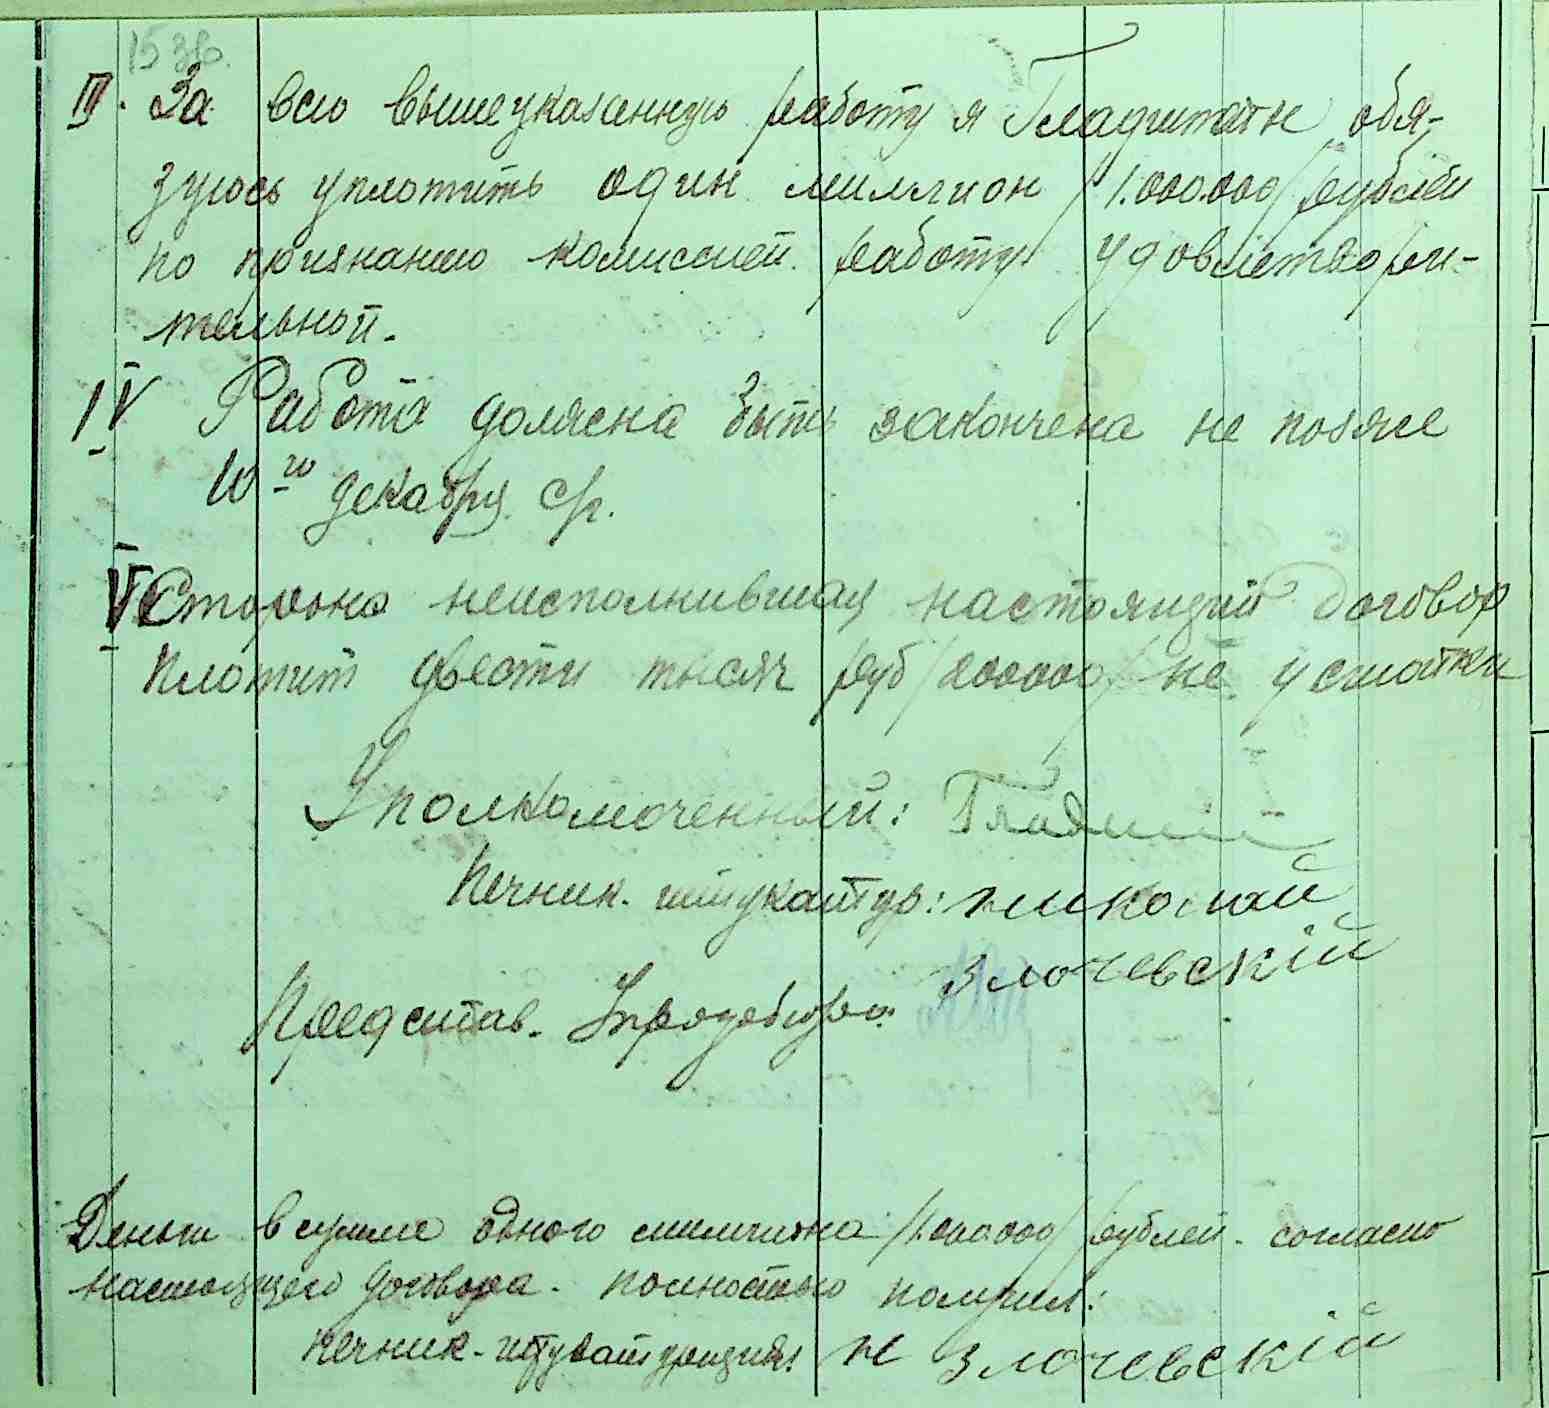 15 зв.
III. За всю вышеуказанную работу я Гладштейн обя-
зуюсь уплотить один миллион /1.000.000/ рублей
по признанию комиссией работу удовлетвори-
тельной.
IV Работа должна быть закончена не позже
10го декабря с/г.
V Сторона неисполнившая настоящий договор
плотит двести тысяч руб /200000/ не устойки
Уполномоченный:
Печник. штукатур: николай
злочевскій
Представ. Упродобюро:
Деньги в сумме одного миллиона /1.000.000/ рублей. согласно
настоящего договора. полностью получил:
печник-штукатурщик: н злочевскій